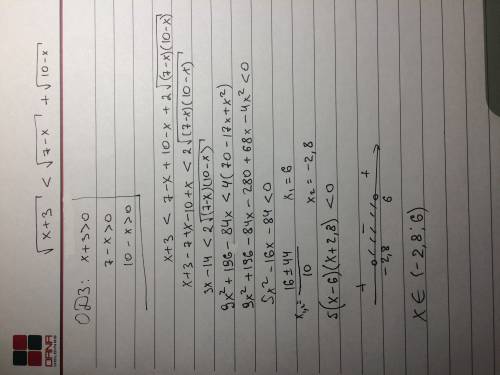 DANA
√x+3 < √7-x + √10-x
ОДЗ: x+3>0
7-x>0
10-x>0
x+3 < 7-x+10-x+2√(7-x)(10-x)
x+3-7+x-10+x < 2√(7-x)(10-x)
3x-14 < 2√(7-x)(10-x)
9x²+196-84x < 4(70-17x+x²)
9x²+196-84x-280+68x-4x² < 0
5x²-16x-84 < 0
x₁,₂ = 16±44/10 x₁=6 x₂=-2,8
5(x-6)(x+2,8) < 0
+ - +
-2,8 6
x∈(-2,8;6)